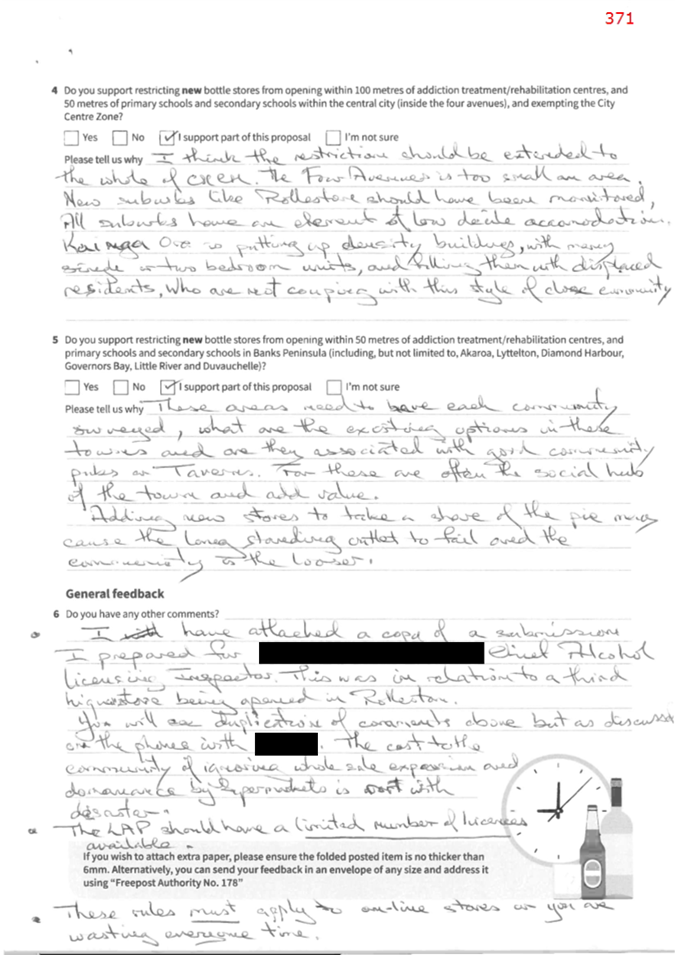 371
4 Do you support restricting new bottle stores from opening within 100 metres of addiction treatment/rehabilitation centres, and
50 metres of primary schools and secondary schools within the central city (inside the four avenues), and exempting the City
Centre Zone?
Yes No ✓ I support part of this proposal I'm not sure
Please tell us why I think the restrictions should be extended to
the whole of CHCH. The Four Avenues is too small an area.
New suburbs like Rolleston should have been monitored,
All suburbs have an element of low decile accomodation.
Kainga Ora is putting up density buildings, with many
single or two bedroom units, and filling them with displaced
residents, who are not couping with this style of close community
5 Do you support restricting new bottle stores from opening within 50 metres of addiction treatment/rehabilitation centres, and
primary schools and secondary schools in Banks Peninsula (including, but not limited to, Akaroa, Lyttelton, Diamond Harbour,
Governors Bay, Little River and Duvauchelle)?
Yes No ✓ I support part of this proposal I'm not sure
Please tell us why These areas need to have each community
surveyed, what are the existing options in these
towns and are they associated with good community
pubs or Taverns. For these are often the social hub
of the town and add value.
Adding new stores to take a share of the pie may
cause the long standing outlet to fail and the
community is the looser.
General feedback
6 Do you have any other comments?
I have attached a copy of a submission
I prepared for Chief Alcohol
licensing Inspector. This was in relation to a third
liquorstore being opened in Rolleston.
You will see duplication of comments above but as discussed
on the phone with . The cost to the
community of ignoring whole sale expansion and
domanance by Supermarkets is with
desaster.
The LAP should have a limited number of licences
available.
If you wish to attach extra paper, please ensure the folded posted item is no thicker than
6mm. Alternatively, you can send your feedback in an envelope of any size and address it
using "Freepost Authority No. 178"
These rules must apply to on-line stores or you are
wasting everyone time.